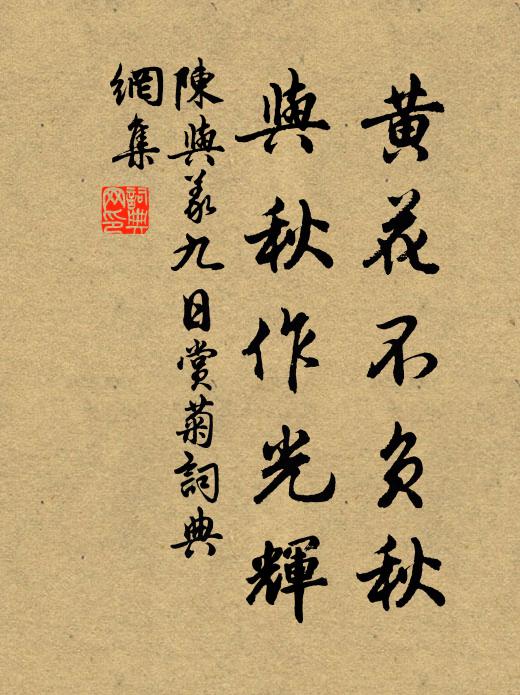 黃花不負秋
與秋作光輝
陳與義九日賞菊詞典
網集
詞典
网印